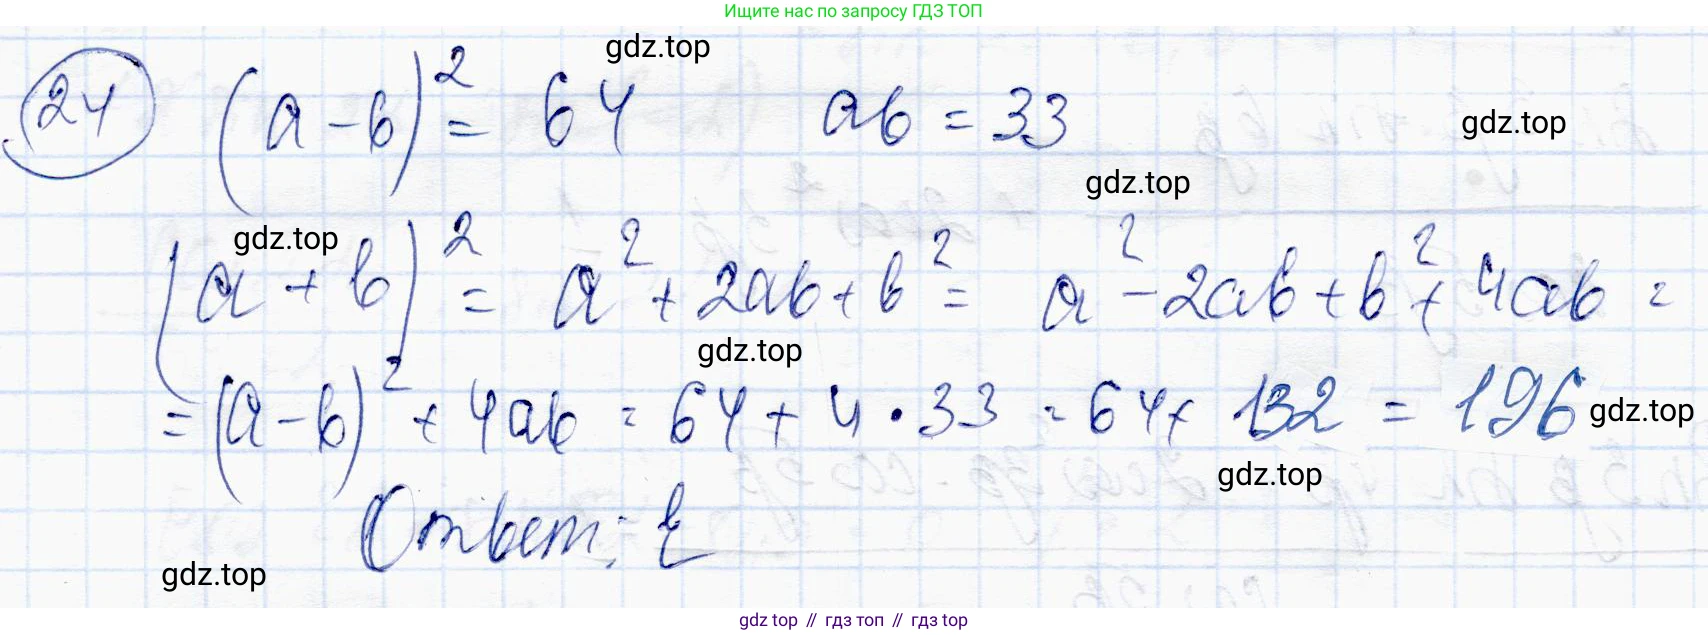 Ищите нас по запросу ГДЗ ТОП
gdz.top
24 (a-b)² = 64 ab = 33
gdz.top
gdz.top
gdz.top
(a + b)² = a² + 2ab + b² = a² - 2ab + b² + 4ab =
gdz.top
= (a-b)² + 4ab = 64 + 4 · 33 = 64 + 132 = 196
gdz.top
gdz.top
Ответ: E
gdz.top
gdz top // гдз топ // gdz top